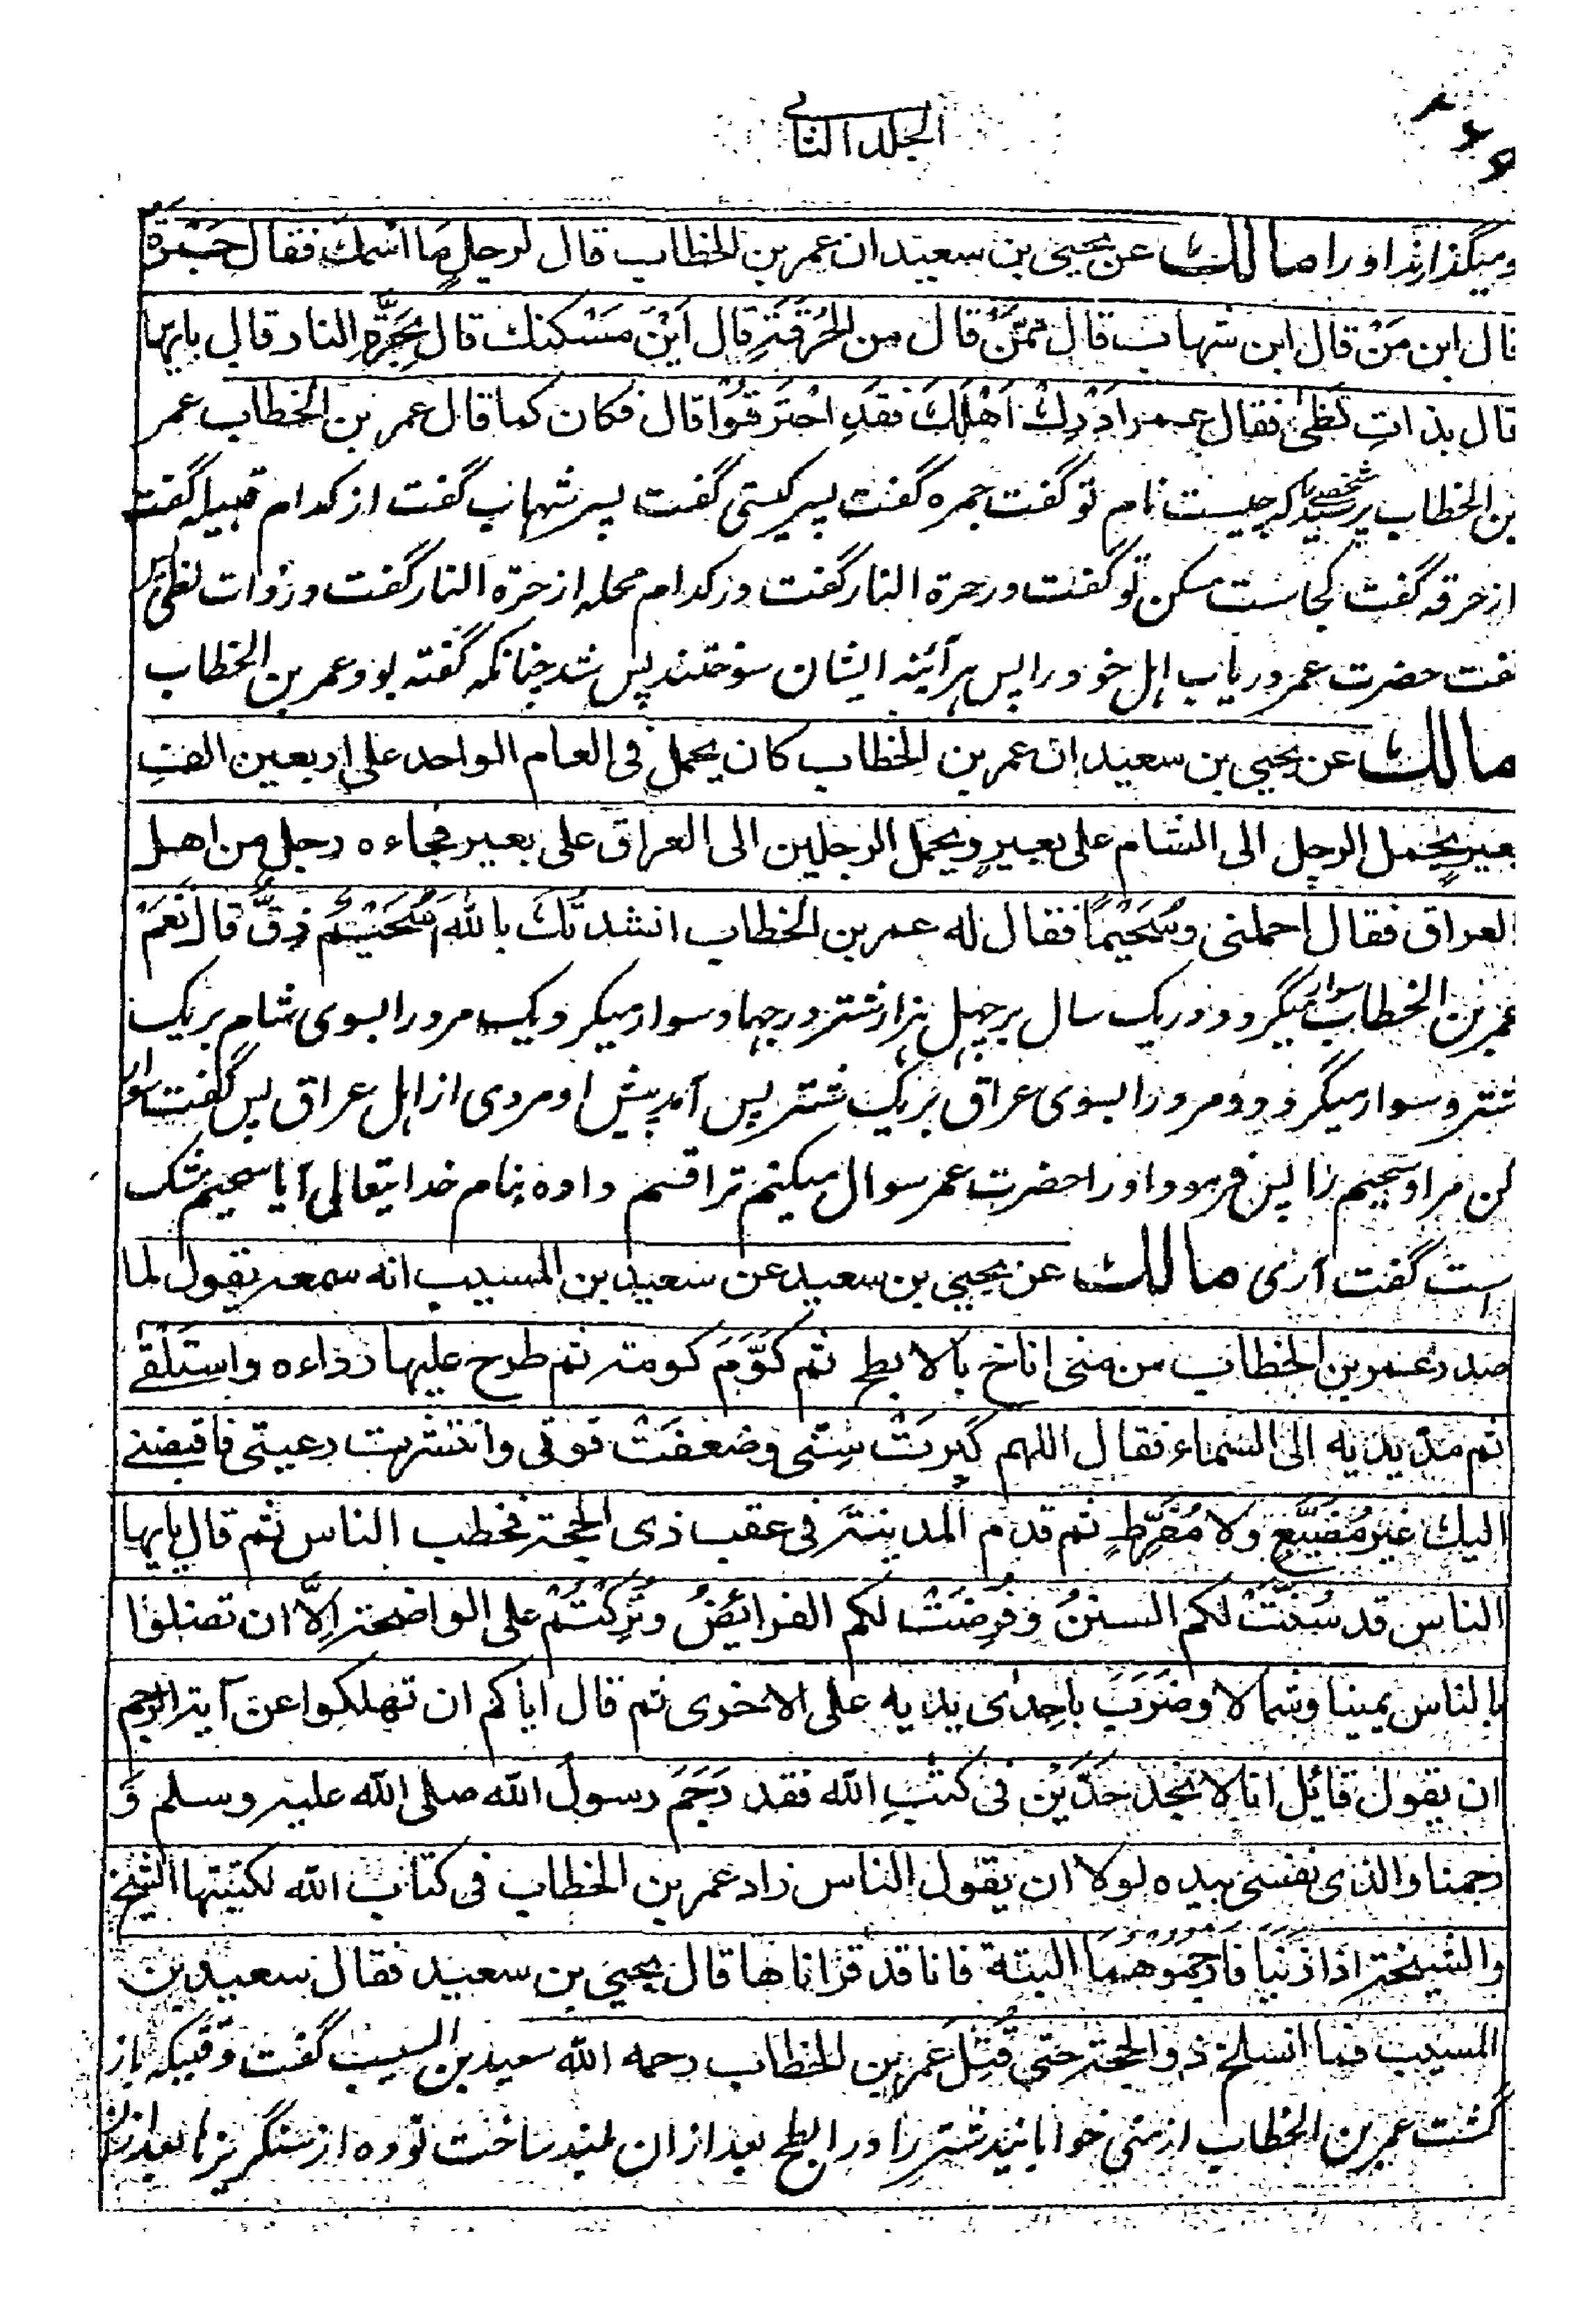 الجلد الثانی
ومیگذارند او را مالك عن یحیی بن سعید ان عمر بن الخطاب قال لرجلٍ مَا اسْمك فقال جَمْرَة
قال ابن مَنْ قال ابن شهاب قال مِمَّنْ قال من الحُرَقَةِ قال اَیْنَ مَسْکنك قال بِحَرَّةِ النار قال بایها
قال بذاتِ لَظیٰ فقال عمر اَدْرِكْ اَهْلَكَ فقَدِ احْتَرقُوْا قال فکان کما قال عمر بن الخطاب عمر
بن الخطاب پرسید شخصی را که چیست نام تو گفت جمره گفت پسر کیستی گفت پسر شهاب گفت از کدام قبیله گفت
از حرقه گفت کجاست مسکن تو گفت در حرة النار گفت در کدام محله از حرة النار گفت در ذات لظی
گفت حضرت عمر دریاب اہل خود را پس ہرآئینہ ایشان سوختند پس شد چنانکه گفته بود عمر بن الخطاب
مالك عن یحیی بن سعید ان عمر بن الخطاب کان یحمل فی العام الواحد علی اربعین الفِ
بعیرٍ یحمل الرجل الی الشام علی بعیرٍ ویحمل الرجلین الی العراق علی بعیر فجاءه رجل من اهل
العراق فقال احملنی وسُحَیْمًا فقال له عمر بن الخطاب انشدتك بالله اَسُحَیْمٌ زِقٌّ قال نَعَمْ
عمر بن الخطاب سوار میکرد در یک سال بر چہل ہزار شتر در جہاد سوار میکرد یک مرد را بسوی شام بر یک
شتر و سوار میکرد دو مرد را بسوی عراق بر یک شتر پس آمد پیش او مردی از اہل عراق پس گفت سوار
کن مرا و سحیم را پس فرمود او را حضرت عمر سوال میکنم ترا قسم داده بنام خدایتعالی آیا سحیم مشک
است گفت آری مالك عن یحیی بن سعید عن سعید بن المسیب انه سمعه یقول لما
صدر عمر بن الخطاب من منی اناخ بالابطح ثم کَوَّمَ کومة ثم طرح علیها رداءه واستَلْقٰے
ثم مدّ یدیه الی السماء فقال اللهم کَبِرَتْ سِنّی وضعفَتْ قوتی وانتشرت رعیتی فاقبضنے
الیك غیر مُضَیِّعٍ ولا مُفَرِّطٍ ثم قدم المدینة فی عقب ذی الحجة فخطب الناس ثم قال یایها
الناس قد سُنَّتْ لکم السننُ وفُرِضَتْ لکم الفرائضُ وتُرِکْتُمْ علی الواضحة اِلَّا ان تضلوا
بالناس یمینا وشمالا وضَرَبَ باِحدٰی یدیه علی الاخری ثم قال ایاکم ان تهلکوا عن آیة الرجم
ان یقول قائل انا لا نجد حَدَّیْنِ فی کتٰبِ الله فقد رَجَمَ رسول الله صلی الله علیه وسلم وَ
رجمنا والذی نفسی بیده لولا ان یقول الناس زاد عمر بن الخطاب فی کتاب الله لکتبتها الشیخ
والشیخة اذا زَنَیَا فَارْجُمُوْهُمَا البتة فانا قد قراناها قال یحیی بن سعید فقال سعید بن
المسیب فما انسلخ ذو الحجة حتی قُتِلَ عمر بن الخطاب رحمه الله سعید بن المسیب گفت وقتیکه باز
گشت عمر بن الخطاب از منی خوابانید شتر را در ابطح بعد ازان بلند ساخت توده از سنگریزہا بعد ازان